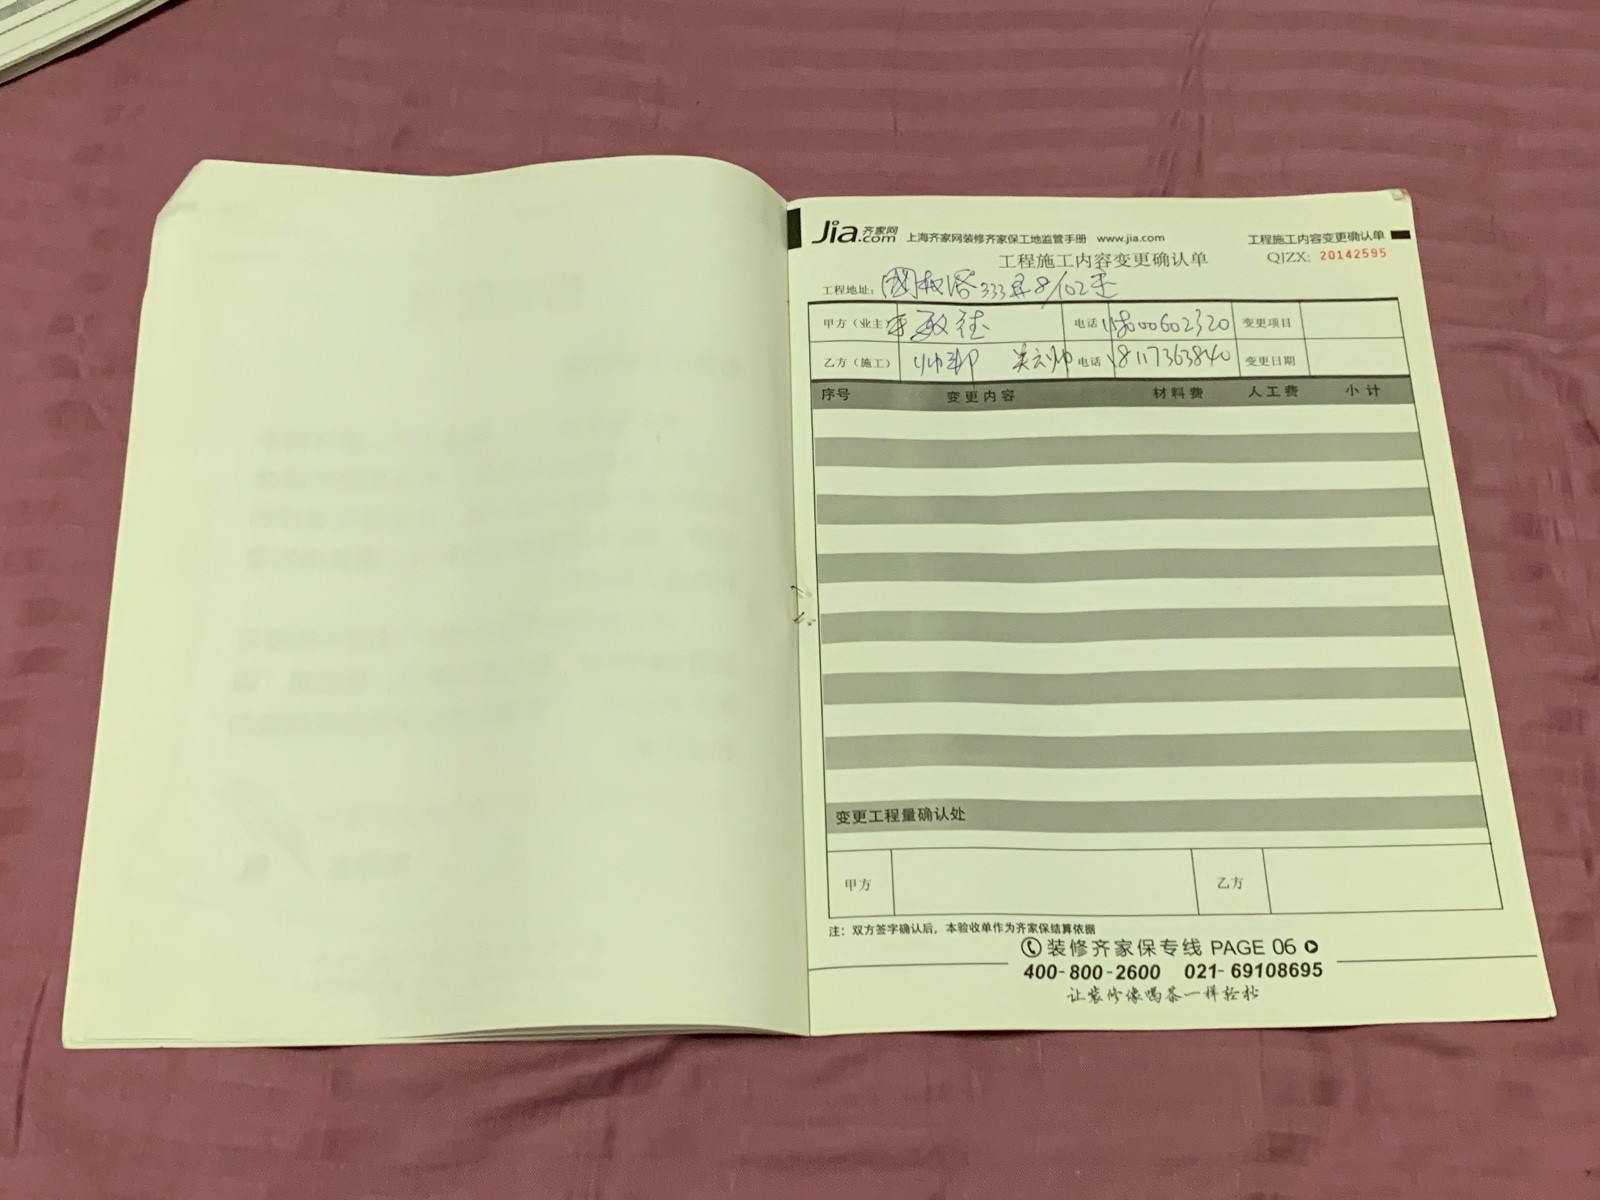 Jia.com 齐家网 上海齐家网装修齐家保工地监管手册 www.jia.com 工程施工内容变更确认单
工程施工内容变更确认单 QJZX: 20142595
工程地址: 国权路333弄8/102室
甲方（业主） 电话 15800602320 变更项目
乙方（施工） 帅郑 吴云帅 电话 18117363840 变更日期
序号 变更内容 材料费 人工费 小计
变更工程量确认处
甲方 乙方
注：双方签字确认后，本验收单作为齐家保结算依据
装修齐家保专线 PAGE 06
400-800-2600 021-69108695
让装修像喝茶一样轻松